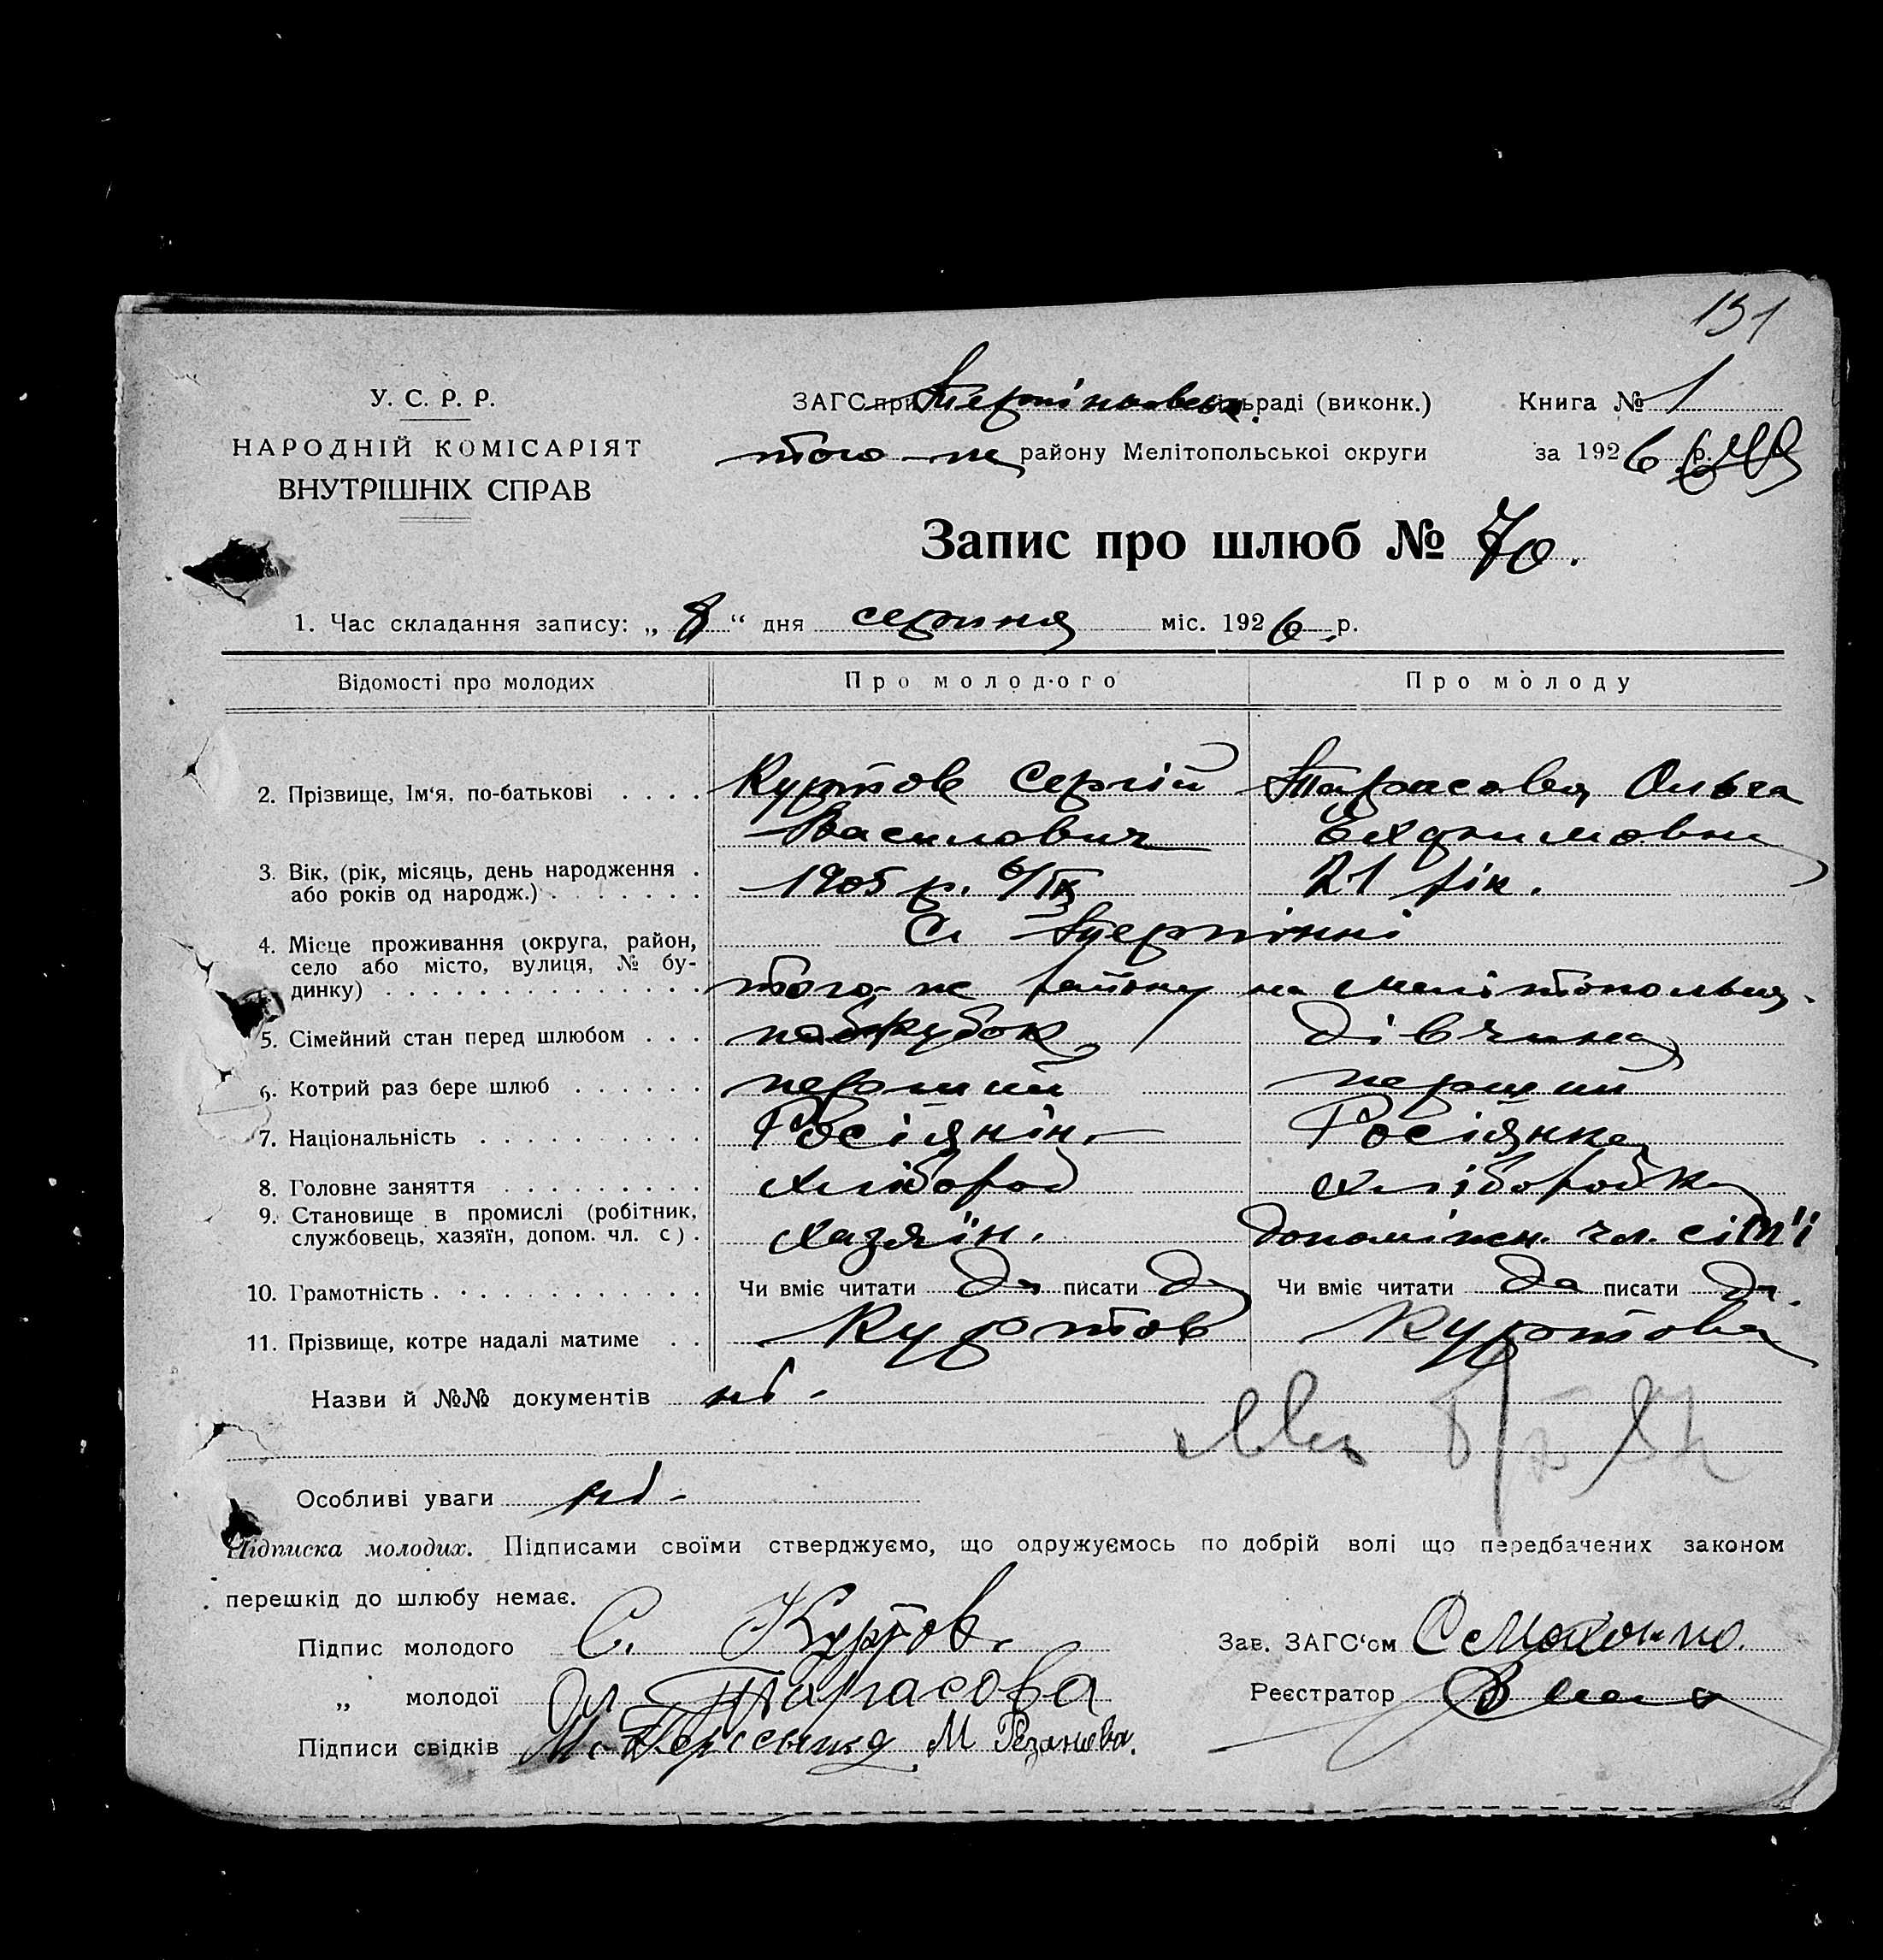 151
У. С. Р. Р.
НАРОДНІЙ КОМІСАРІЯТ
ВНУТРІШНІХ СПРАВ
ЗАГС при Терпіньевськ. сільраді (виконк.)
того-же району Мелітопольської округи
Книга № 1
за 1926 р.
Запис про шлюб № 70.
1. Час складання запису: „ 8 “ дня серпня міс. 1926 р.
Відомості про молодих Про молодого Про молоду
2. Прізвище, Ім‘я, по-батькові . . . . Куртов Сергій Тарасова Ольга
Василович
3. Вік, (рік, місяць, день народження . 1905 р. 6/IX 21 рік.
або років од народж.) . . . . . . .
4. Місце проживання (округа, район, С. Терпінні
село або місто, вулиця, № бу-
динку) . . . . . . . . . . . . . . того-же району на Мелітопольщ.
5. Сімейний стан перед шлюбом . . . парубок дівчина
6. Котрий раз бере шлюб . . . . . . перший перший
7. Національність . . . . . . . . . . Росіянін Росіянка
8. Головне заняття . . . . . . . . . хлібороб хліборобка
9. Становище в промислі (робітник,
службовець, хазяїн, допом. чл. с). хазяїн. допоміжн. чл. сім'ї
10. Грамотність . . . . . . . . . . . . Чи вміє читати да писати да Чи вміє читати да писати да.
11. Прізвище, котре надалі матиме . . Куртов Куртова
Назви й №№ документів ні -
Особливі уваги ні -
Підписка молодих. Підписами своїми стверджуємо, що одружуємось по добрій волі що передбачених законом
перешкід до шлюбу немає.
Підпис молодого С. Куртов.
„ молодої Ол Тарасова
Підписи свідків М Рєзанова.
Зав. ЗАГС‘ом
Реєстратор